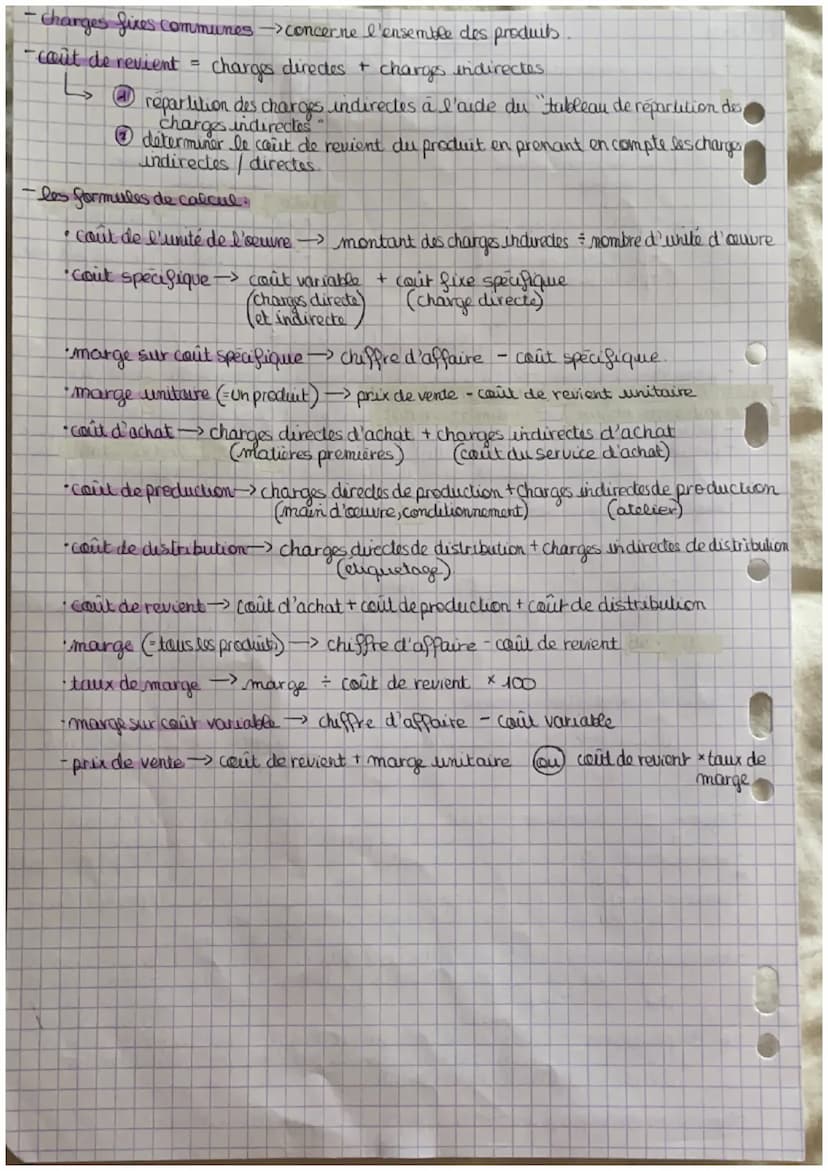 - charges fixes communes → concerne l'ensemble des produits.
- coût de revient = charges directes + charges indirectes
↳ ① répartition des charges indirectes à l'aide du "tableau de répartition des
charges indirectes"
② déterminer le coût de revient du produit en prenant en compte les charges
indirectes / directes.
- les formules de calcul :
• coût de l'unité de l'oeuvre → montant des charges indirectes ÷ nombre d'unité d'oeuvre
• coût spécifique → coût variable + coût fixe spécifique
(charges directe) (charge directe)
(et indirecte)
• marge sur coût spécifique → chiffre d'affaire - coût spécifique.
• marge unitaire (= un produit) → prix de vente - coût de revient unitaire
• coût d'achat → charges directes d'achat + charges indirectes d'achat
(matières premières) (coût du service d'achat)
• coût de production → charges directes de production + charges indirectes de production
(main d'oeuvre, conditionnement) (atelier)
• coût de distribution → charges directes de distribution + charges indirectes de distribution
(etiquetage)
• coût de revient → coût d'achat + coût de production + coût de distribution
• marge (= tous les produits) → chiffre d'affaire - coût de revient
• taux de marge → marge ÷ coût de revient × 100
• marge sur coût variable → chiffre d'affaire - coût variable
- prix de vente → coût de revient + marge unitaire (ou) coût de revient × taux de
marge